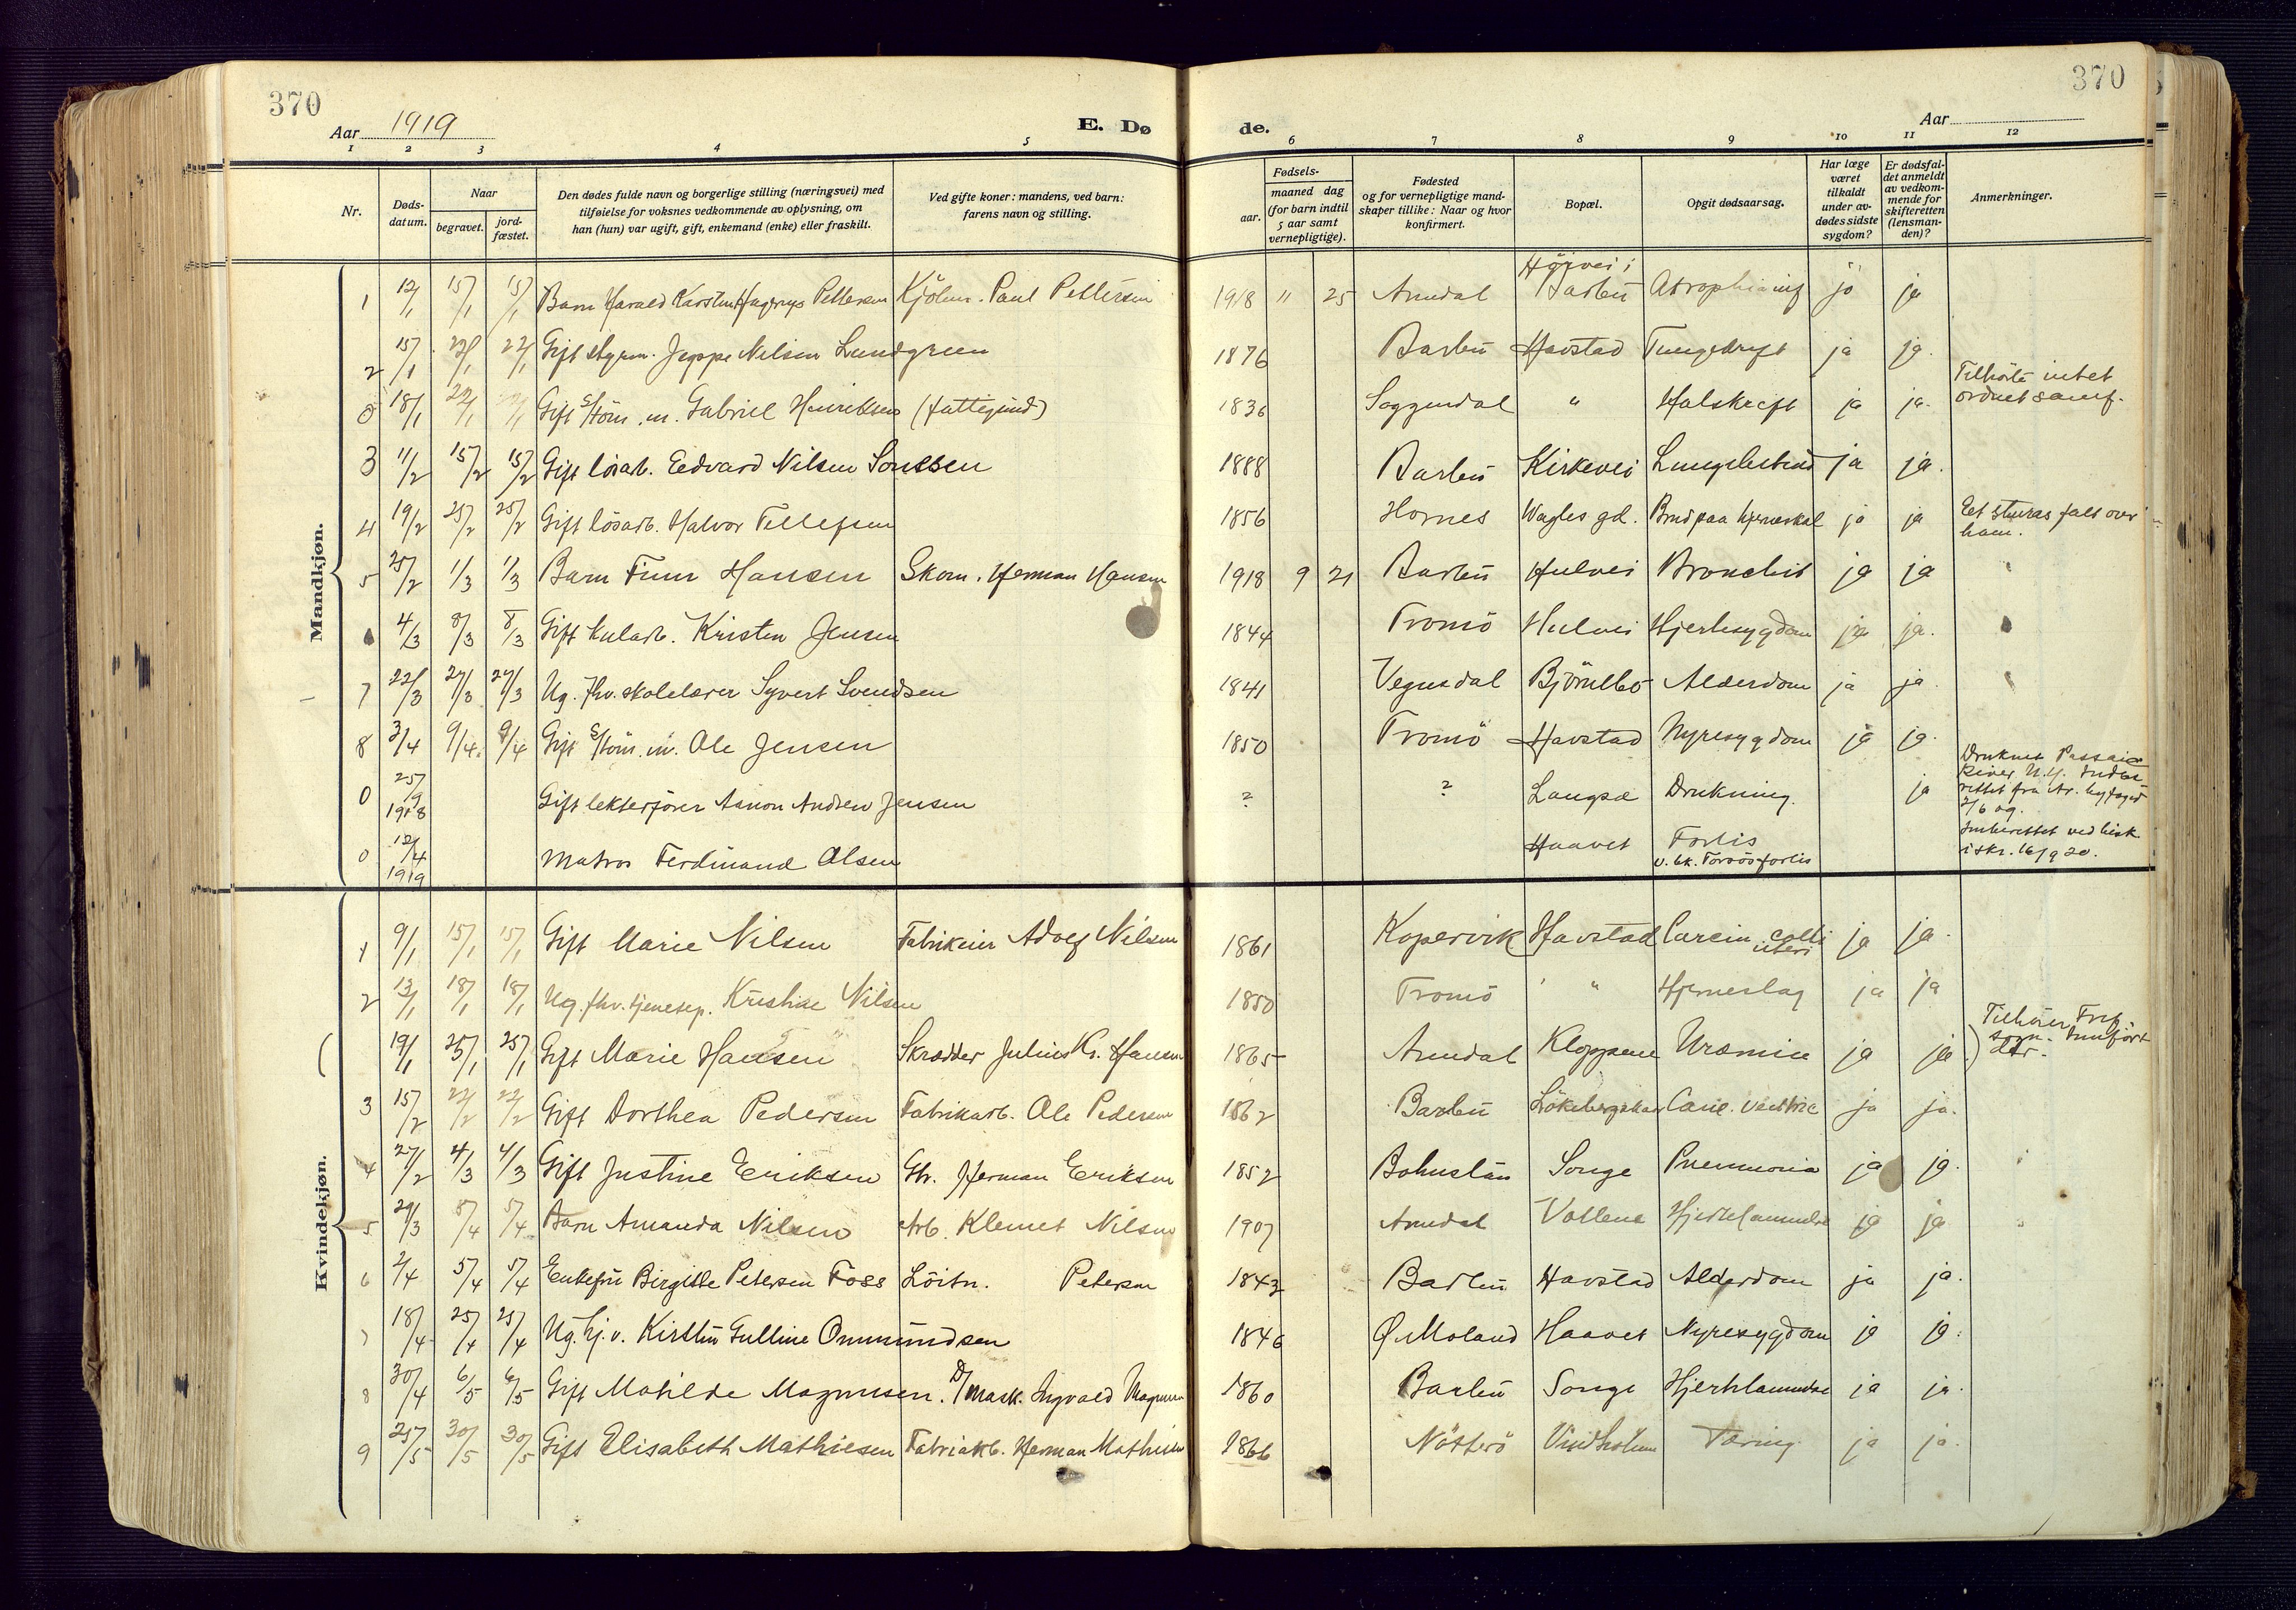 370
Aar 1919
E. Dø
de.
Aar
370
1 2 3 4 5 6 7 8 9 10 11 12
Nr.
Døds-
datum.
Naar
begravet.
jord-
fæstet.
Den dødes fulde navn og borgerlige stilling (næringsvei) med
tilføielse for voksnes vedkommende av oplysning, om
han (hun) var ugift, gift, enkemand (enke) eller fraskilt.
Ved gifte koner: mandens, ved barn:
farens navn og stilling.
Fødsels-
aar.
maaned dag
(for barn indtil
5 aar samt
vernepligtige).
Fødested
og for vernepligtige mand-
skaper tillike: Naar og hvor
konfirmert.
Bopæl.
Opgit dødsaarsag.
Har læge
været
tilkaldt
under av-
dødes sidste
sygdom?
Er dødsfal-
det anmeldt
av vedkom-
mende for
skifteretten
(lensman-
den)?
Anmerkninger.
Mandkjøn.
1 12/1 15/1 15/1 Barn Harald Karsten Pettersen Paul Pettersen 1918 " 25 Arendal Barbu ja ja
2 15/1 22/1 22/1 Gift styrm. Jeppe Nilsen Lundgreen 1876 Barbu Havstad ja ja.
0 18/1 22/1 Gift Gabriel Henriksen 1836 Soggendal " Halskreft ja ja. Tilhörte intet
ordnet samf.
3 11/2 15/2 15/2 Gift lösarb. Edvard Nilsen 1888 Barbu Kirkevei ja ja.
4 19/2 25/2 25/2 Gift lösarb. Halvor Tellefsen 1856 Hornes Wagles gd. Brud paa hjerneskal ja ja falt over
ham.
5 25/2 1/3 1/3 Barn Finn Hansen Skom. Herman Hansen 1918 9 21 Barbu Hulvei Bronchit ja ja
4/3 8/3 8/3 Gift kularb. Kristen Jensen 1844 Tromö Hulvei Hjertesygdom ja ja.
7 22/3 27/3 27/3 Ug. fhv. skolelærer Syvert Svendsen 1841 Vegusdal Alderdom ja ja
8 3/4 9/4 9/4 Gift Ole Jensen 1850 Tromö Havstad Nyresygdom ja ja.
0 25/9 1918 Gift lekterfører Andrew Jensen ? ? Langsæ Drukning. ja Druknet Passaic
River N.Y.
0 12/4 1919 Matros Ferdinand Olsen Haavet Forlis
Indberettet ved
16/9 20.
Kvindekjøn.
1 9/1 15/1 15/1 Gift Marie Nilsen Fabrikeier Adolf Nilsen 1861 Kopervik Havstad Carcin. colli
uteri ja ja.
2 13/1 18/1 18/1 Ug. fhv. tjenestep. Kristine Nilsen 1850 Tromö " Hjerneslag ja ja
19/1 25/1 25/1 Gift Marie Hansen Skrædder Julius Kr. Hansen 1865 Arendal Kloppene Uræmie ja ja Tilhörer
3 15/2 22/2 22/2 Gift Dorthea Pedersen Fabrikarb. Ole Pedersen 1862 Barbu ja ja.
4 27/2 4/3 4/3 Gift Justine Eriksen Herman Eriksen 1852 Songe Pneumonia ja ja.
5 29/3 5/4 5/4 Barn Amanda Nilsen Arb. Klemet Nilsen 1907 Arendal Vollene ja ja
6 2/4 5/4 5/4 Enkefru Birgitte Petersen Foss Löitn. Petersen 1843 Barbu Havstad Alderdom ja ja.
7 18/4 25/4 25/4 Ug. hj. v. Kirsten Gulline Ommundsen 1846 Ø. Moland Haavet Nyresygdom ja ja.
8 30/4 6/5 6/5 Gift Matilde Magnussen. D/Mask. Ingvald Magnussen 1860 Barbu Songe Hjertelammelse ja ja.
9 25/5 30/5 30/5 Gift Elisabeth Mathiesen Fabrikarb. Herman Mathiesen 1866 Nötterö Vindholmen Tæring ja ja.